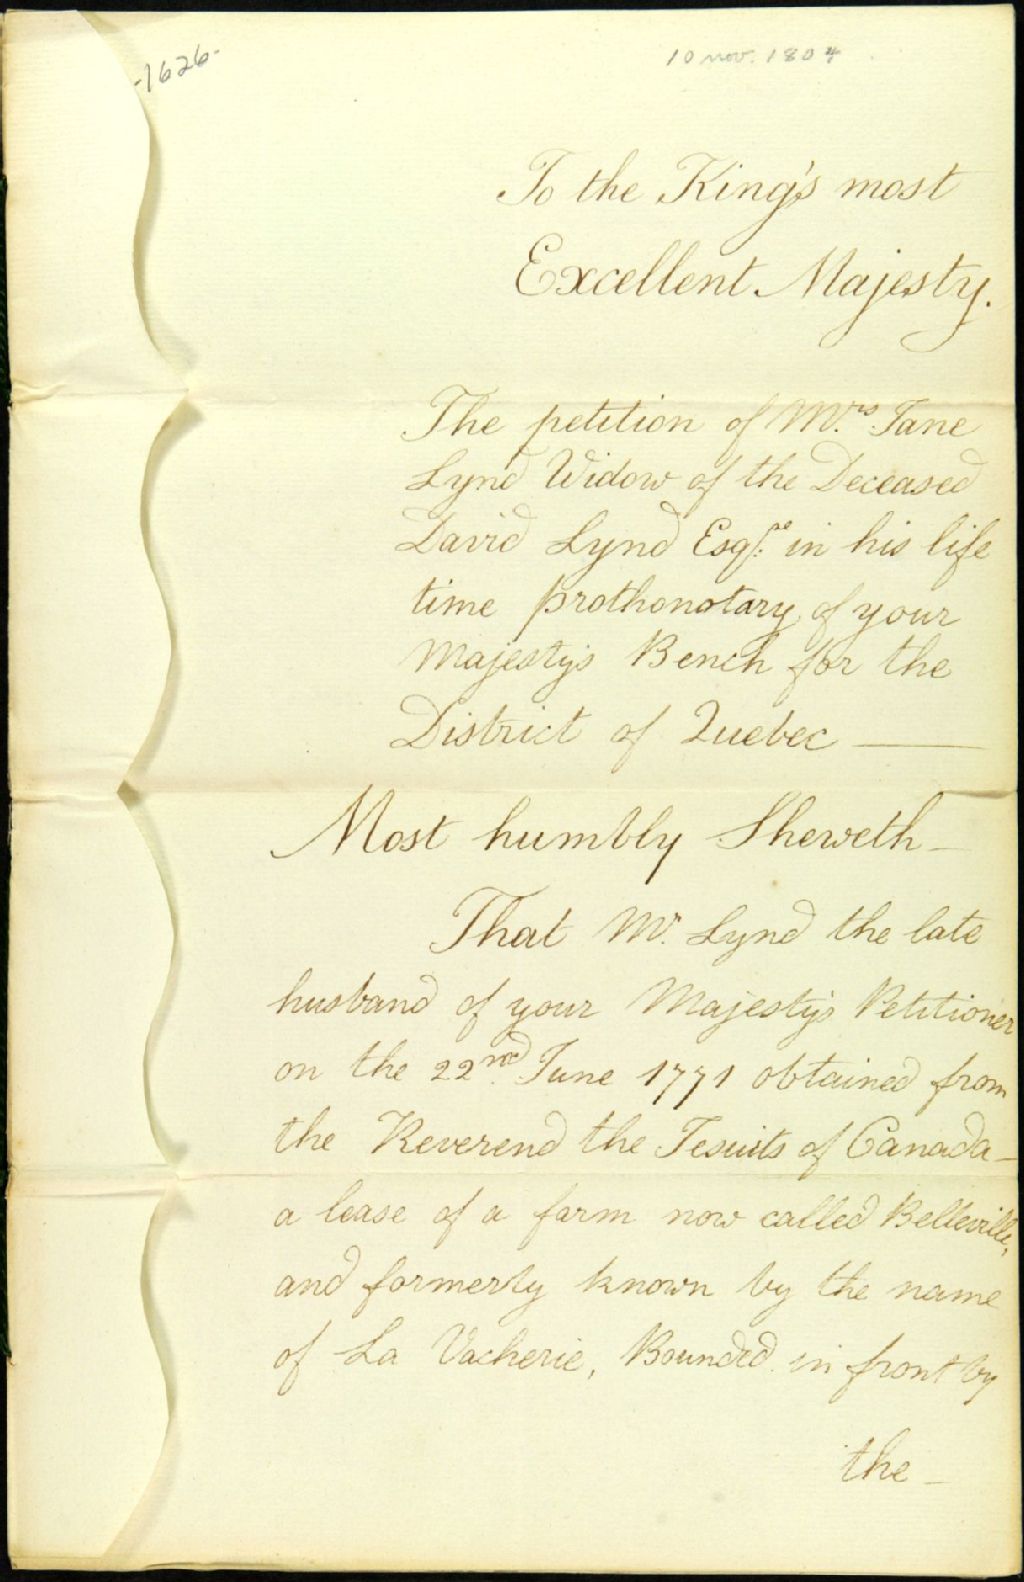 -1626-
10 nov. 1804
To the King's most
Excellent Majesty.
The petition of Mrs. Jane
Lynd Widow of the Deceased
David Lynd Esqre. in his life
time prothonotary of your
Majesty's Bench for the
District of Quebec —
Most humbly Sheweth —
That Mr. Lynd the late
husband of your Majesty's Petitioner
on the 22nd. June 1771 obtained from
the Reverend the Jesuits of Canada —
a lease of a farm now called Belleville,
and formerly known by the name
of La Vacherie, Bounded in front by
the —